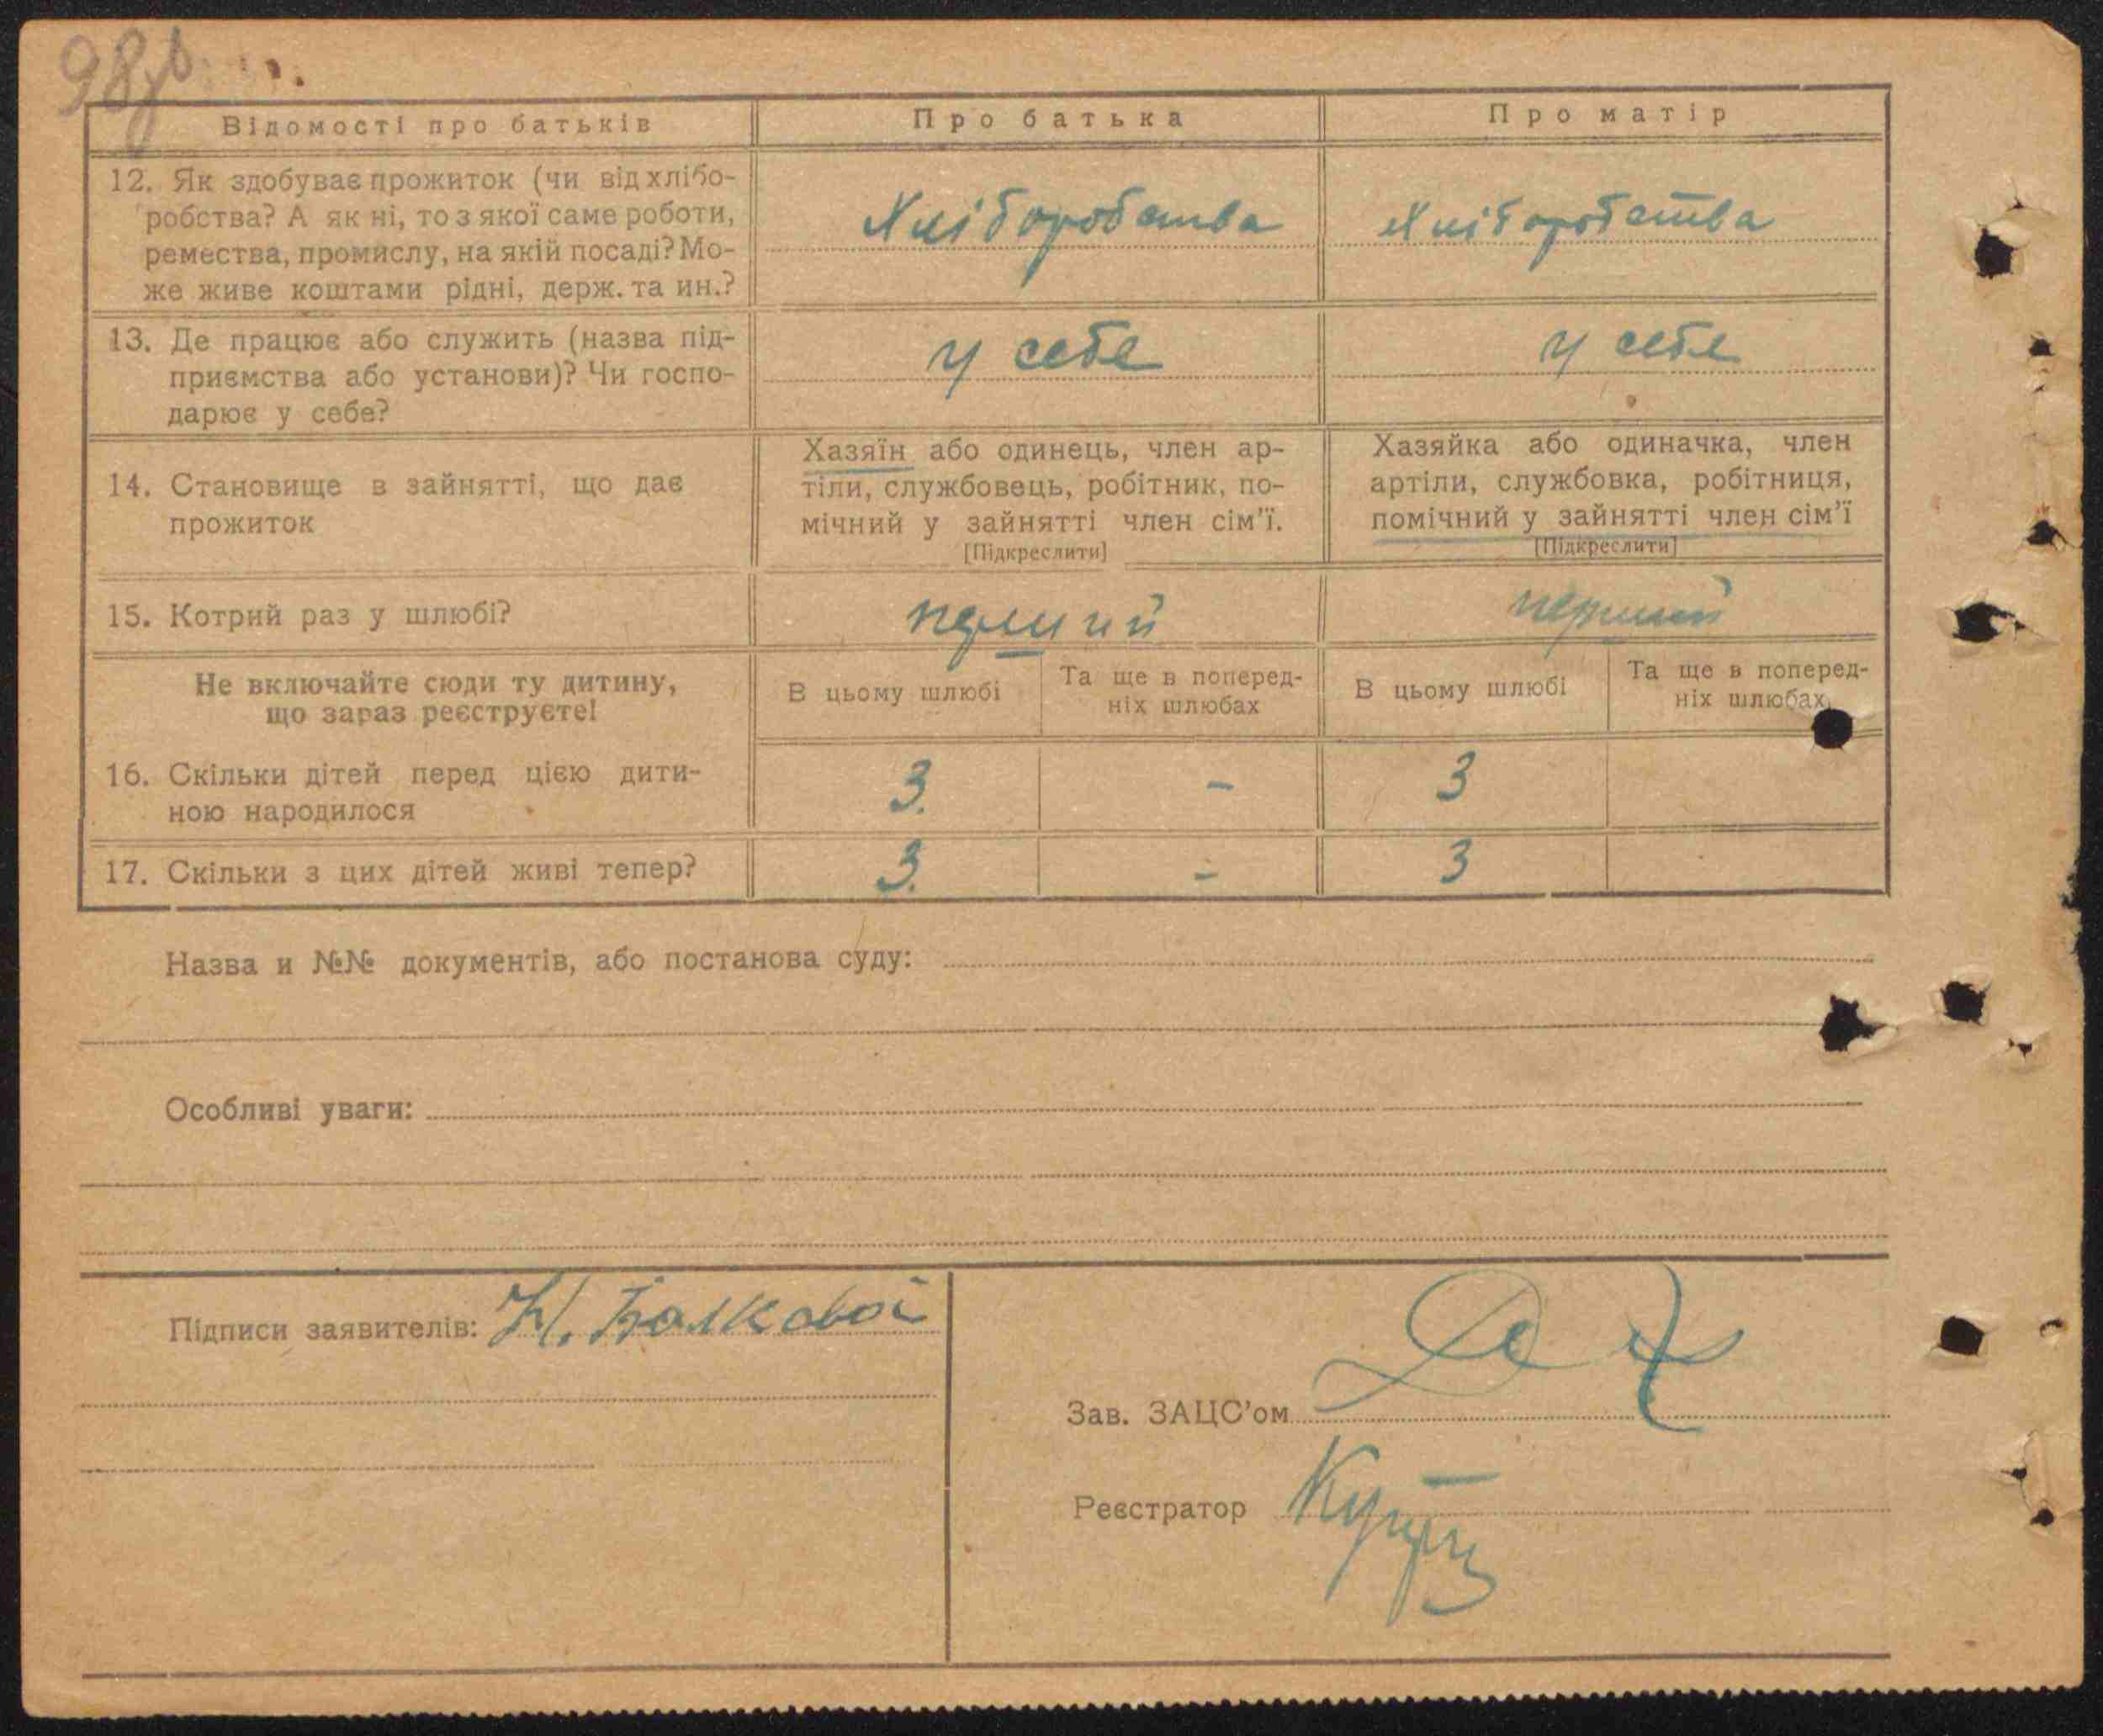 98
Відомості про батьків
Про батька
Про матір
12. Як здобуває прожиток (чи від хлібо-
робства? А як ні, то з якої саме роботи,
ремества, промислу, на якій посаді? Мо-
же живе коштами рідні, держ. та ин.?
Хліборобства
Хліборобства
13. Де працює або служить (назва під-
приємства або установи)? Чи госпо-
дарює у себе?
у себе
у себе
14. Становище в зайнятті, що дає
прожиток
Хазяїн або одинець, член ар-
тіли, службовець, робітник, по-
мічний у зайнятті член сім'ї.
[Підкреслити]
Хазяйка або одиначка, член
артіли, службовка, робітниця,
помічний у зайнятті член сім'ї
[Підкреслити]
15. Котрий раз у шлюбі?
перший
перший
Не включайте сюди ту дитину,
що зараз реєструєте!
В цьому шлюбі
Та ще в поперед-
ніх шлюбах
В цьому шлюбі
Та ще в поперед-
ніх шлюбах
16. Скільки дітей перед цією дити-
ною народилося
3. - 3
17. Скільки з цих дітей живі тепер?
3. - 3
Назва и №№ документів, або постанова суду:
Особливі уваги:
Підписи заявителів:
Зав. ЗАЦС'ом
Реєстратор